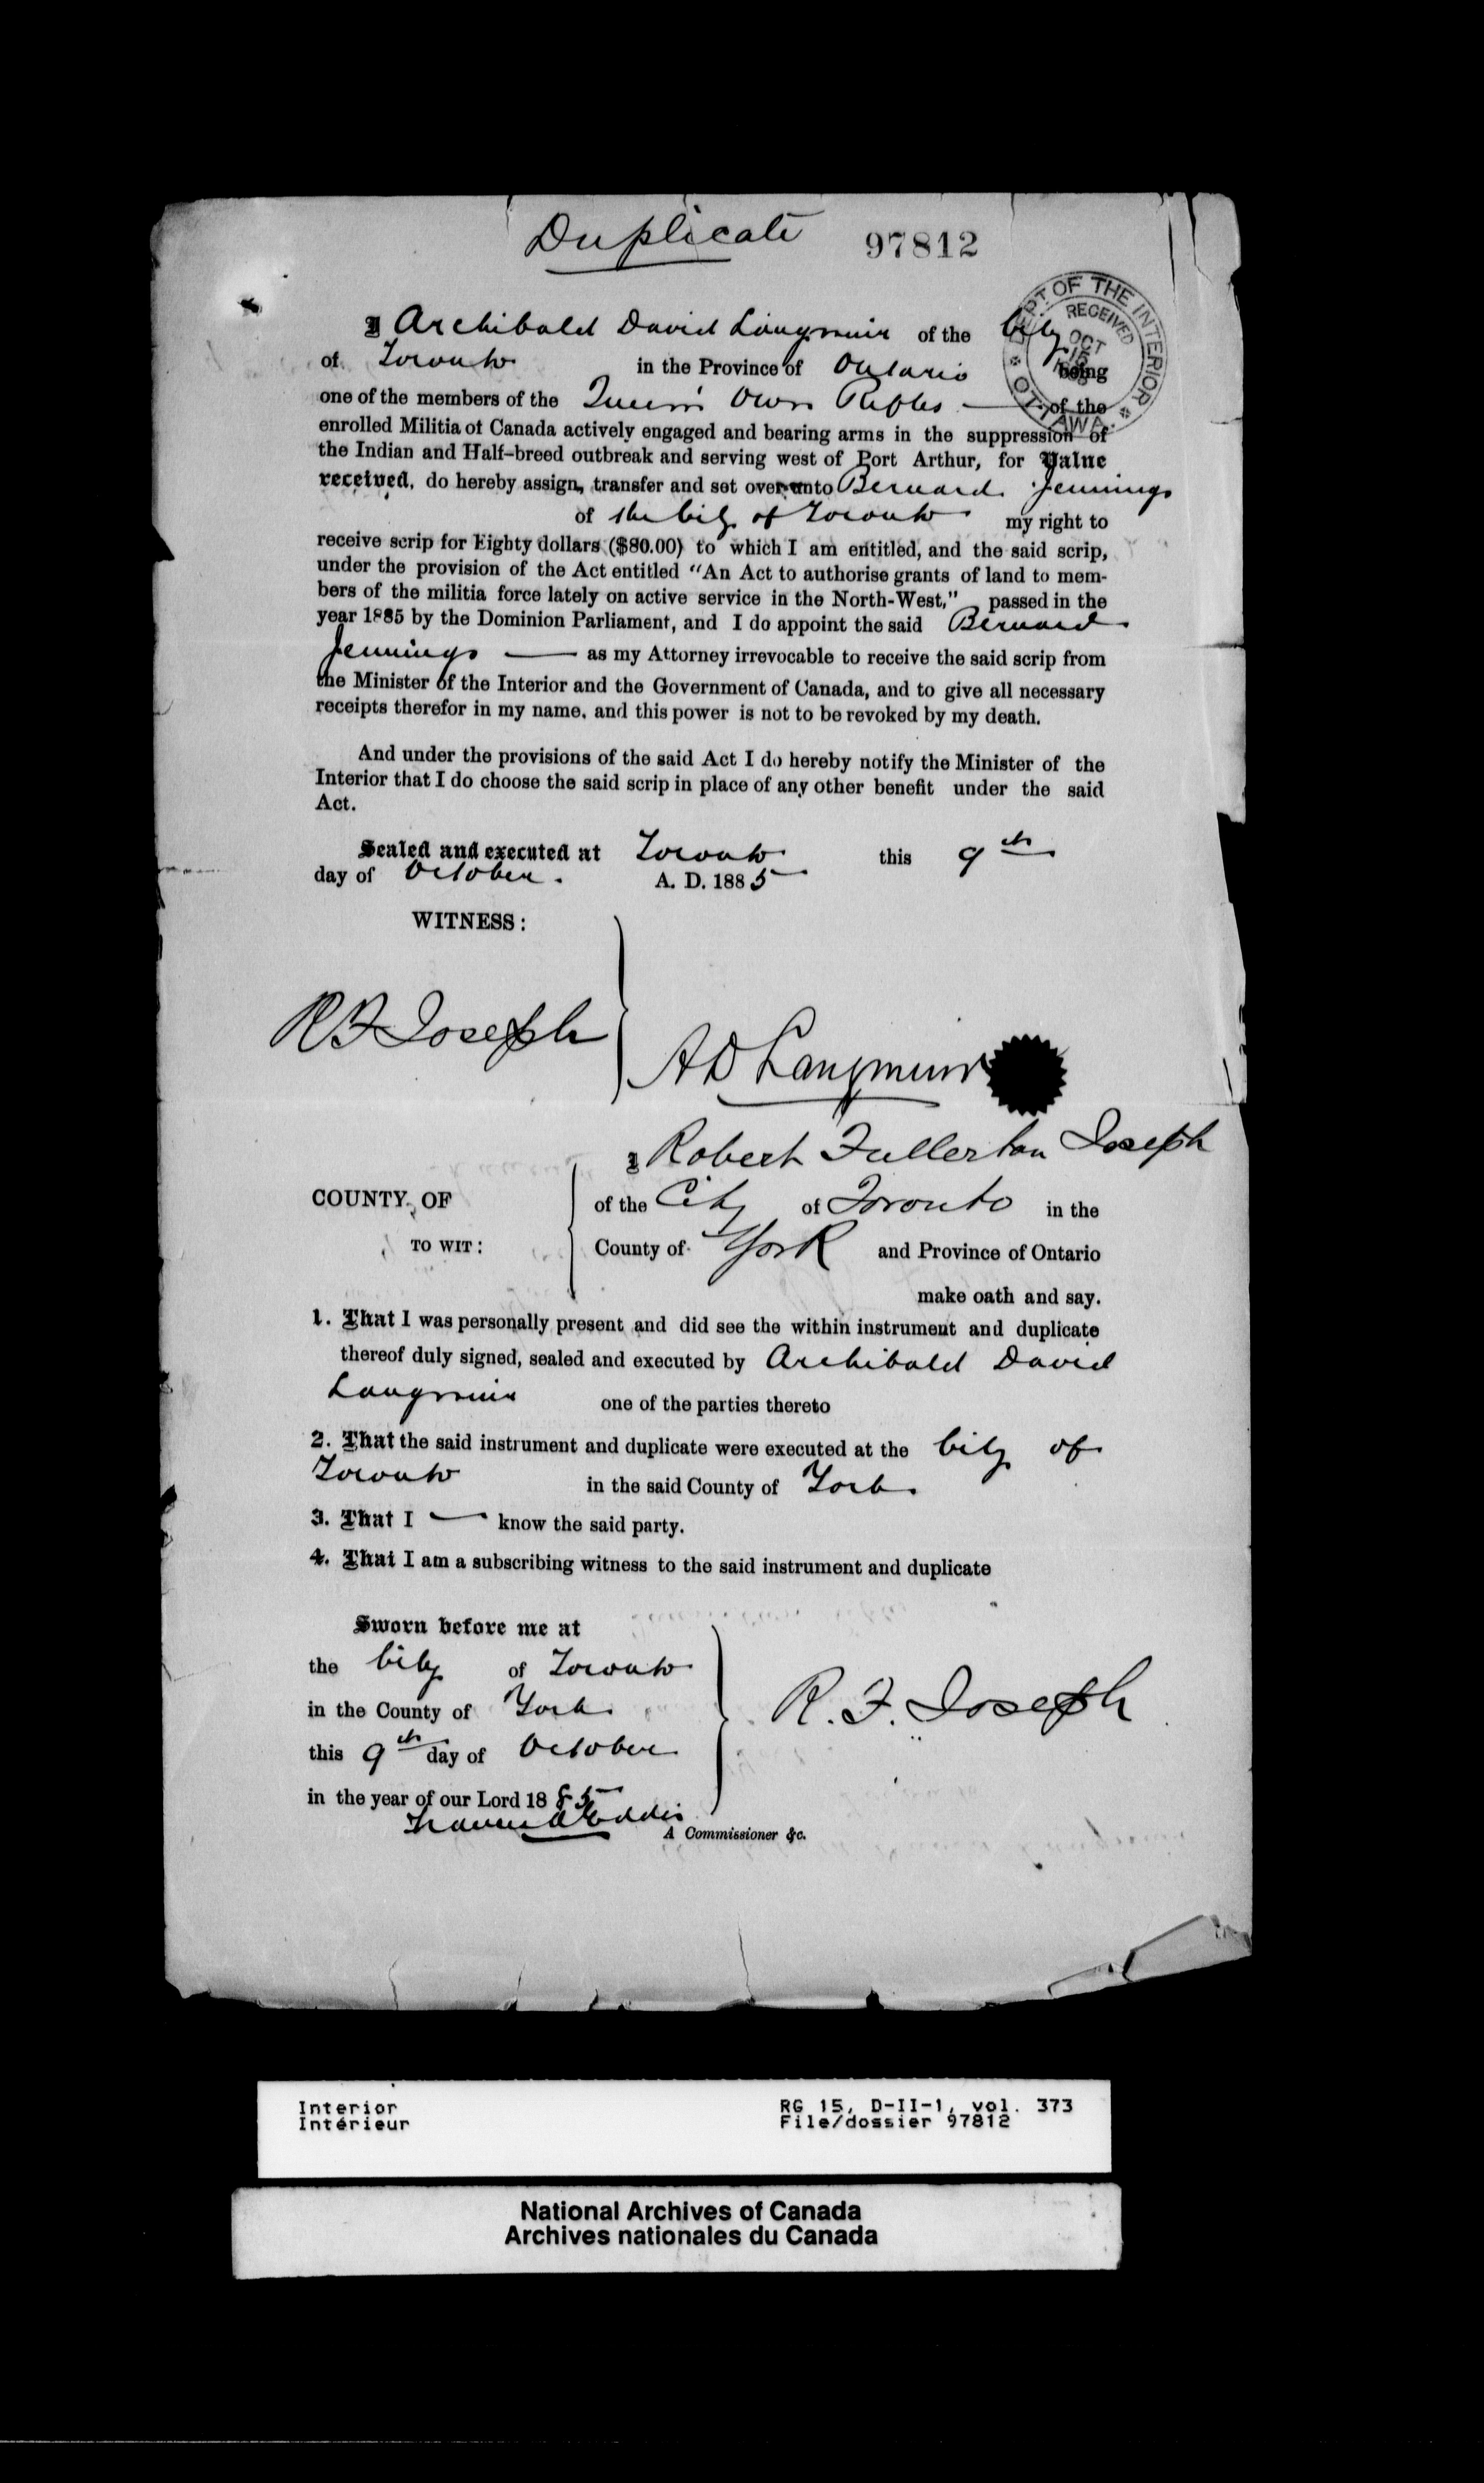 Duplicate 97812
DEPT. OF THE INTERIOR
RECEIVED
OCT
15
OTTAWA
I Archibald David Langmuir of the City
of Toronto in the Province of Ontario being
one of the members of the Queen's Own Rifles — of the
enrolled Militia of Canada actively engaged and bearing arms in the suppression of
the Indian and Half-breed outbreak and serving west of Port Arthur, for Value
received, do hereby assign, transfer and set over unto Bernard Jennings
of the City of Toronto my right to
receive scrip for Eighty dollars ($80.00) to which I am entitled, and the said scrip,
under the provision of the Act entitled "An Act to authorise grants of land to mem-
bers of the militia force lately on active service in the North-West," passed in the
year 1885 by the Dominion Parliament, and I do appoint the said Bernard
Jennings — as my Attorney irrevocable to receive the said scrip from
the Minister of the Interior and the Government of Canada, and to give all necessary
receipts therefor in my name, and this power is not to be revoked by my death.
And under the provisions of the said Act I do hereby notify the Minister of the
Interior that I do choose the said scrip in place of any other benefit under the said
Act.
Sealed and executed at Toronto this 9th
day of October. A. D. 1885
WITNESS:
R F Joseph
A D Langmuir
I Robert Fullerton Joseph
COUNTY OF
of the City of Toronto in the
TO WIT:
County of York and Province of Ontario
make oath and say.
1. That I was personally present and did see the within instrument and duplicate
thereof duly signed, sealed and executed by Archibald David
Langmuir one of the parties thereto
2. That the said instrument and duplicate were executed at the City of
Toronto in the said County of York.
3. That I — know the said party.
4. That I am a subscribing witness to the said instrument and duplicate
Sworn before me at
the City of Toronto
in the County of York
this 9th day of October
in the year of our Lord 1885
R. F. Joseph
A Commissioner &c.
Interior RG 15, D-II-1, vol. 373
Intérieur File/dossier 97812
National Archives of Canada
Archives nationales du Canada